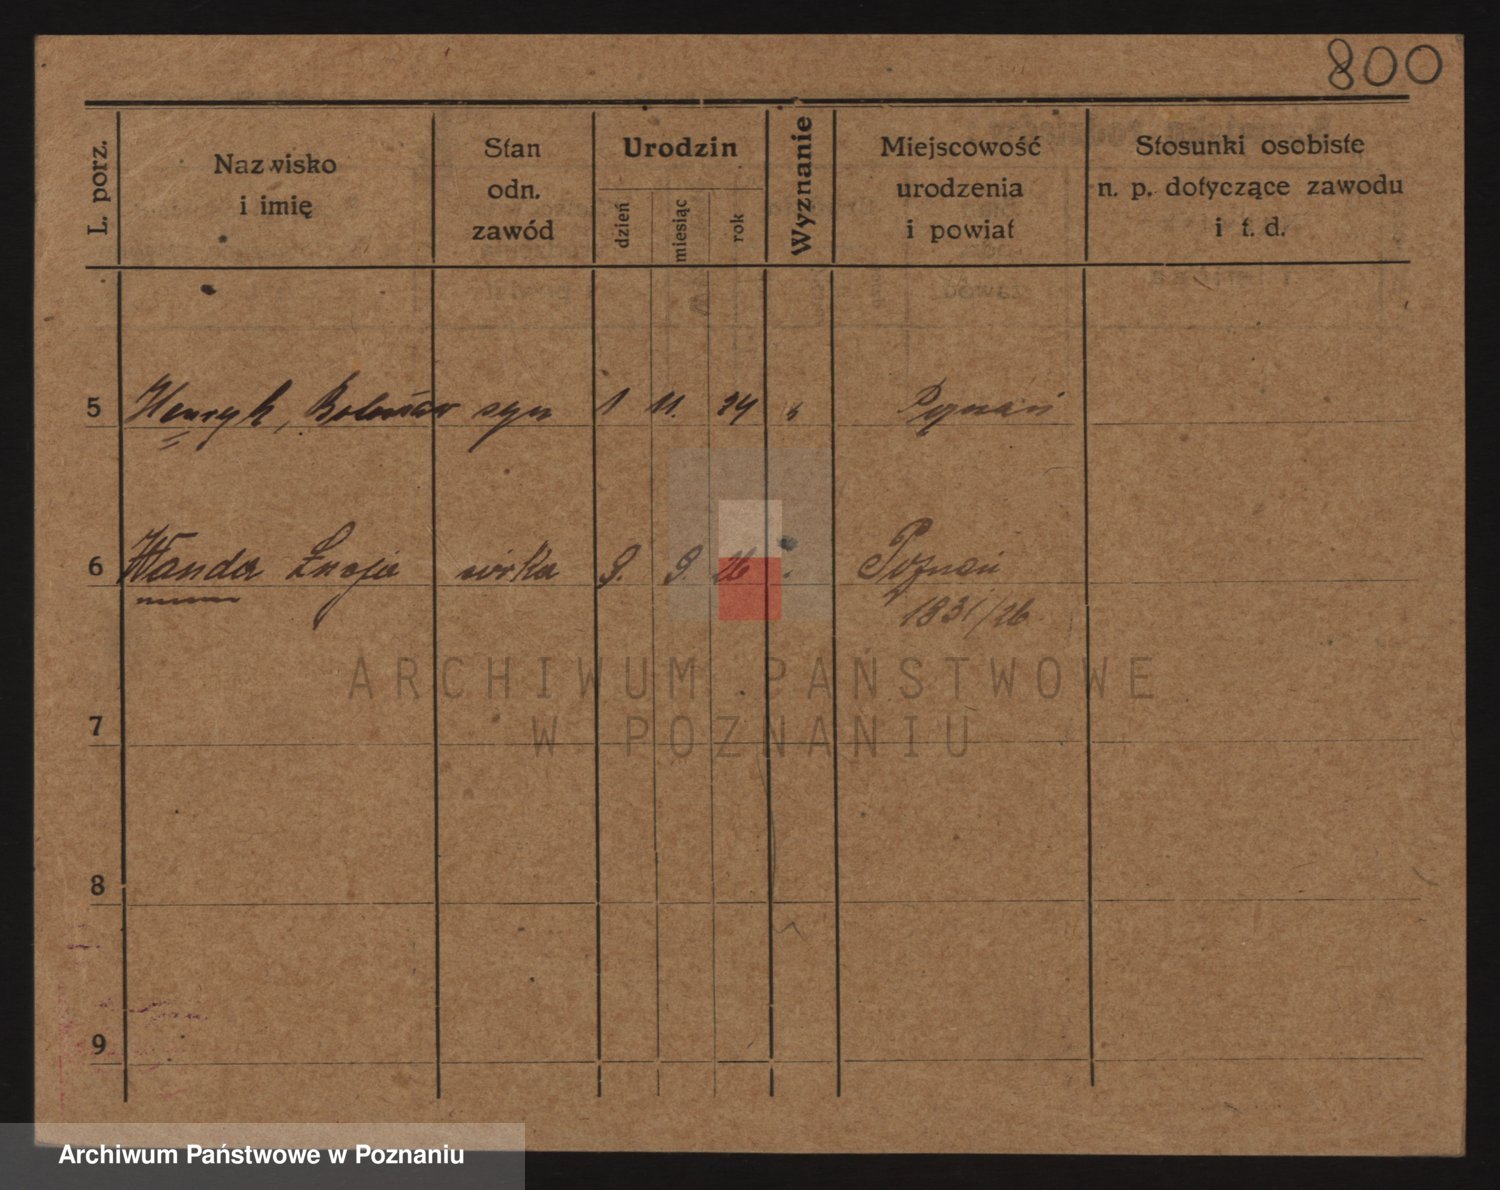 800
L. porz.
Nazwisko
i imię
Stan
odn.
zawód
Urodzin
dzień
miesiąc
rok
Wyznanie
Miejscowość
urodzenia
i powiat
Stosunki osobiste
n. p. dotyczące zawodu
i t. d.
5 Henryk, Bolesław syn 1 11. 24 Poznań
6 Wanda Łucja córka 9. 9. 26 Poznań
1831/26
7
8
9
ARCHIWUM PAŃSTWOWE
W POZNANIU
Archiwum Państwowe w Poznaniu